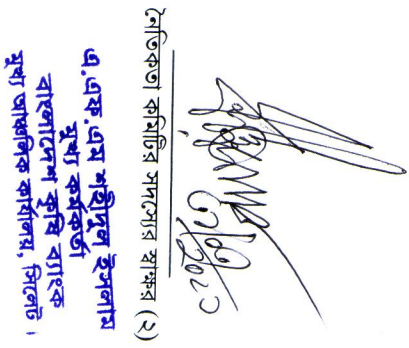 নৈতিকতা কমিটির সদস্যের স্বাক্ষর (২)
এ.এফ.এম শহীদুল ইসলাম
মুখ্য কর্মকর্তা
বাংলাদেশ কৃষি ব্যাংক
মুখ্য আঞ্চলিক কার্যালয়, সিলেট।